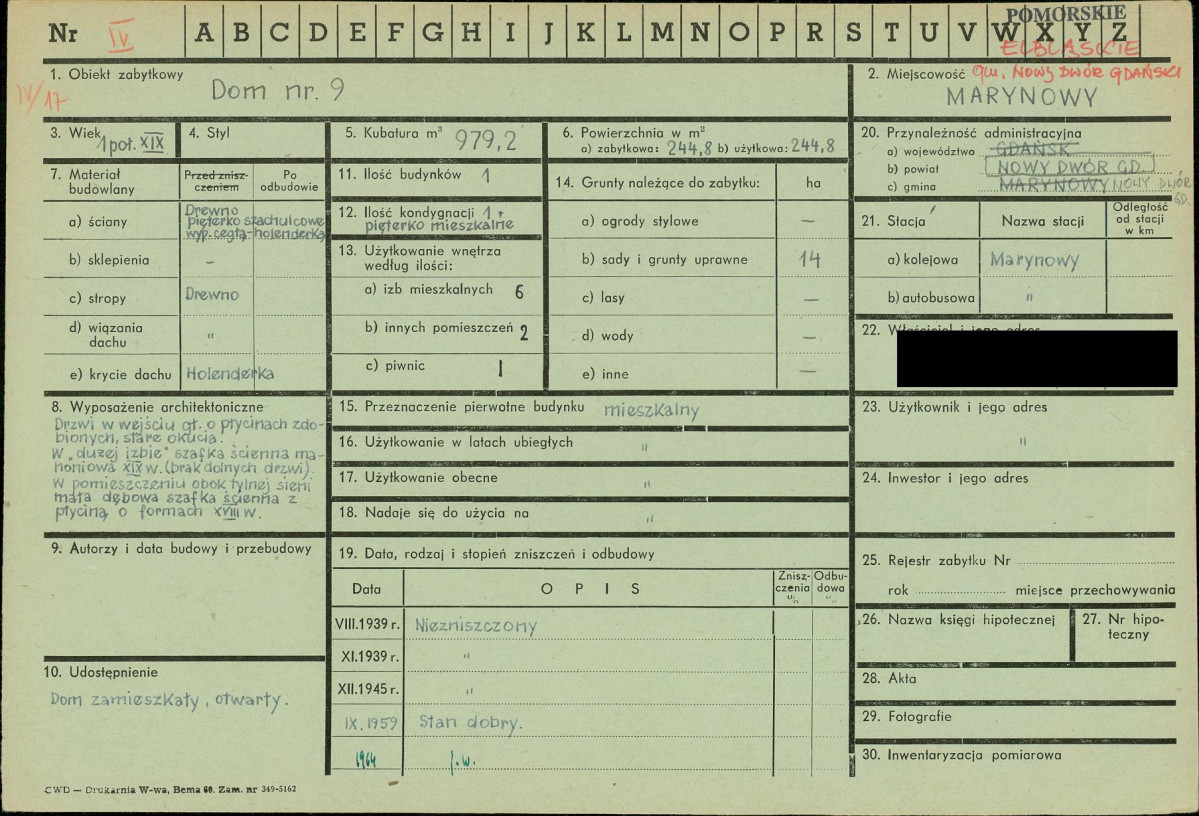 Nr IV. A B C D E F G H I J K L M N O P R S T U V W X Y Z
POMORSKIE
ELBLĄSKIE
IV/17
1. Obiekt zabytkowy
Dom nr. 9
2. Miejscowość gm. NOWY DWÓR GDAŃSKI
MARYNOWY
3. Wiek
1 poł. XIX
4. Styl
5. Kubatura m³ 979,2
6. Powierzchnia w m²
a) zabytkowa: 244,8 b) użytkowa: 244,8
7. Materiał budowlany
Przed znisz-
czeniem
Po
odbudowie
a) ściany
Drewno
pięterko szachulcowe
wyp. cegłą-holenderką
b) sklepienia –
c) stropy Drewno
d) wiązania
dachu "
e) krycie dachu Holenderka
8. Wyposażenie architektoniczne
Drzwi w wejściu gł. o płycinach zdo-
bionych, stare okucia.
W „dużej izbie" szafka ścienna ma-
honiowa XIX w. (brak dolnych drzwi).
W pomieszczeniu obok tylnej sieni
mała dębowa szafka ścienna z
płyciną o formach XVIII w.
9. Autorzy i data budowy i przebudowy
10. Udostępnienie
Dom zamieszkały, otwarty.
11. Ilość budynków 1
12. Ilość kondygnacji 1 +
pięterko mieszkalne
13. Użytkowanie wnętrza
według ilości:
a) izb mieszkalnych 6
b) innych pomieszczeń 2
c) piwnic 1
14. Grunty należące do zabytku: ha
a) ogrody stylowe —
b) sady i grunty uprawne 14
c) lasy —
d) wody —
e) inne —
15. Przeznaczenie pierwotne budynku mieszkalny
16. Użytkowanie w latach ubiegłych "
17. Użytkowanie obecne "
18. Nadaje się do użycia na "
19. Data, rodzaj i stopień zniszczeń i odbudowy
Data OPIS
Znisz-
czenia
Odbu-
dowa
VIII.1939 r. Niezniszczony
XI.1939 r. "
XII.1945 r. "
IX.1959 Stan dobry.
1964 j.w.
20. Przynależność administracyjna
a) województwo GDAŃSK
b) powiat NOWY DWÓR GD.
c) gmina MARYNOWY NOWY DWÓR
GD.
21. Stacja Nazwa stacji
Odległość
od stacji
w km
a) kolejowa Marynowy
b) autobusowa "
22. Właściciel i jego adres
23. Użytkownik i jego adres
"
24. Inwestor i jego adres
25. Rejestr zabytku Nr
rok miejsce przechowywania
26. Nazwa księgi hipotecznej
27. Nr hipo-
teczny
28. Akta
29. Fotografie
30. Inwentaryzacja pomiarowa
CWD — Drukarnia W-wa, Bema 60. Zam. nr 349-5162